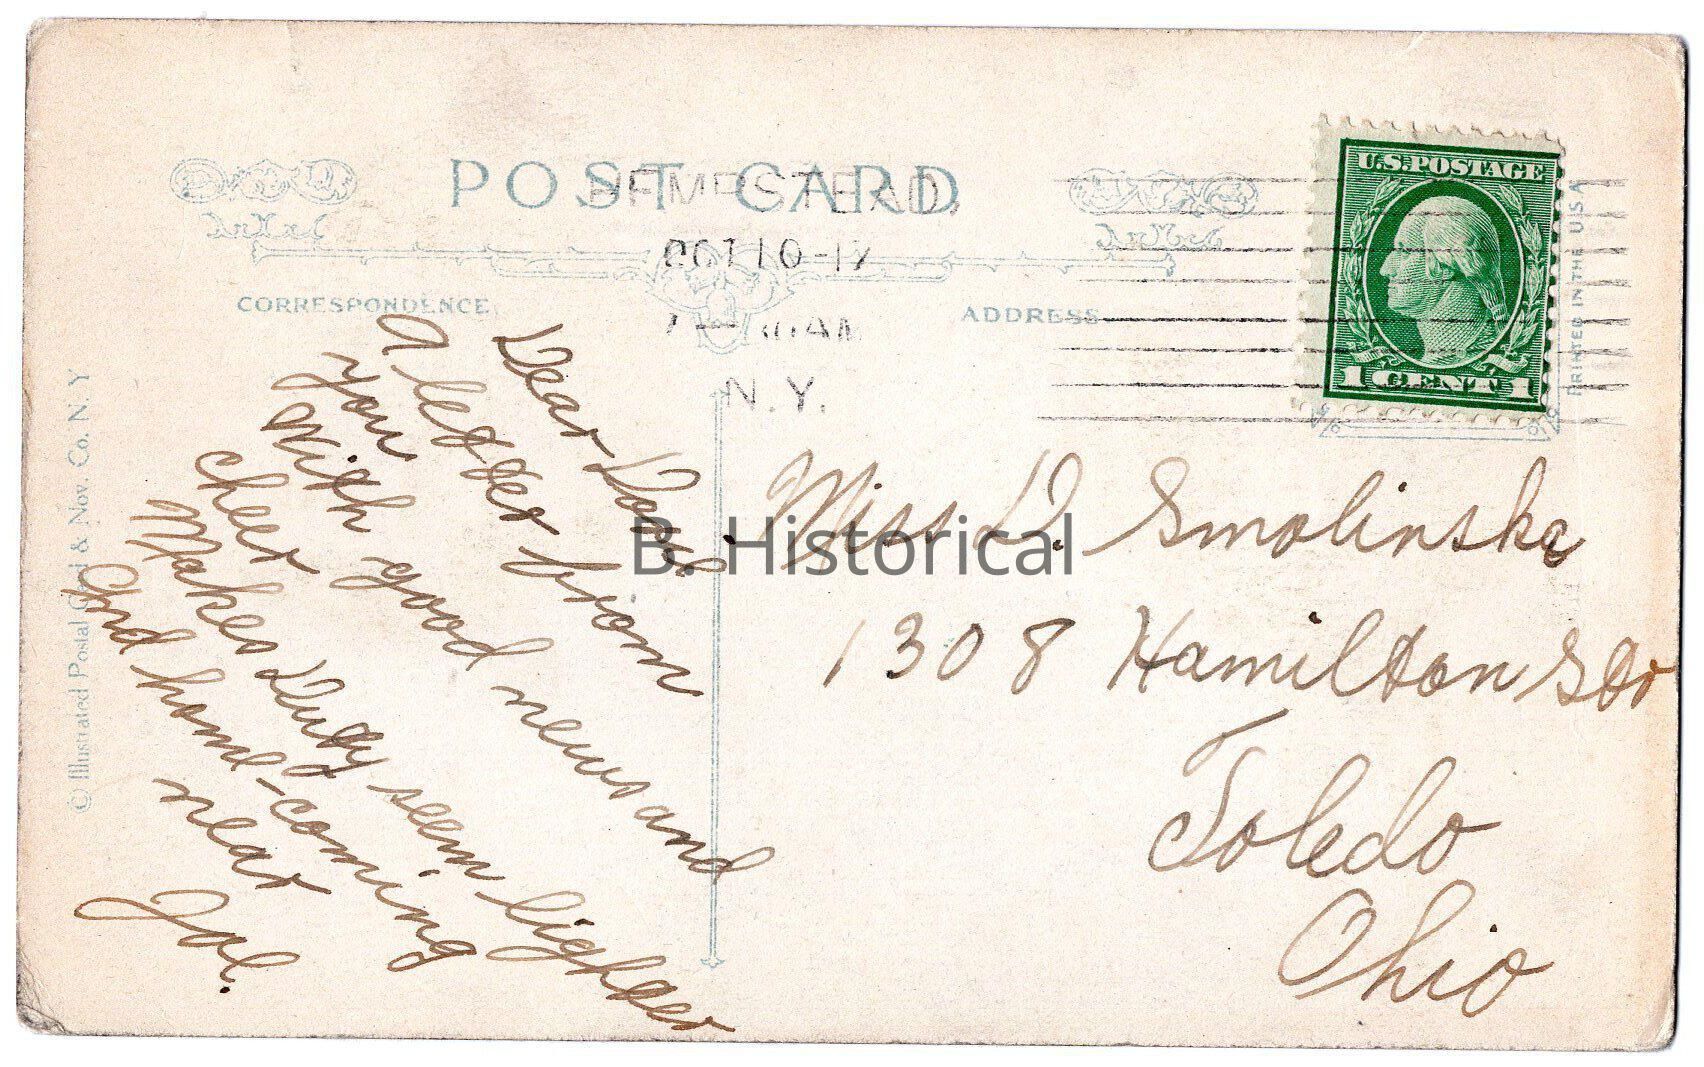 POST CARD
HEMPSTEAD,
OCT 10-17
AM
N.Y.
CORRESPONDENCE
ADDRESS
U.S. POSTAGE
1 CENT 1
PRINTED IN THE U.S.A.
© Illustrated Postal Card & Nov. Co. N. Y.
Dear
A letter from
you
With good news and
cheer
Makes Duty seem lighter
And home-coming
near
Joe.
Miss D. Smolinska
1308 Hamilton Str
Toledo
Ohio
B. Historical